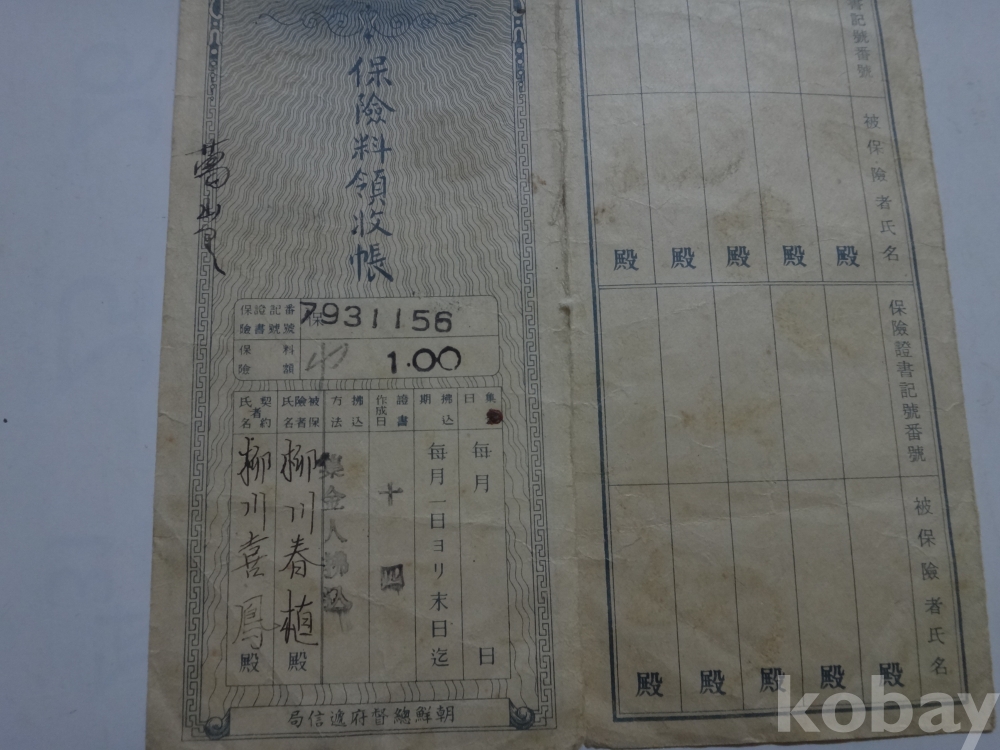 保險料領收帳
保險證書記號番號
保
7931156
保險料額
1.00
集日
每月
日
拂込期
每月一日ヨリ末日迄
證書作成日
十
四
拂込方法
集金人拂込
被保險者氏名
柳川春植
殿
契約者氏名
柳川喜鳳
殿
局信遞府督總鮮朝
書記號番號
被保險者氏名
殿 殿 殿 殿 殿
保險證書記號番號
被保險者氏名
殿 殿 殿 殿 殿
kobay